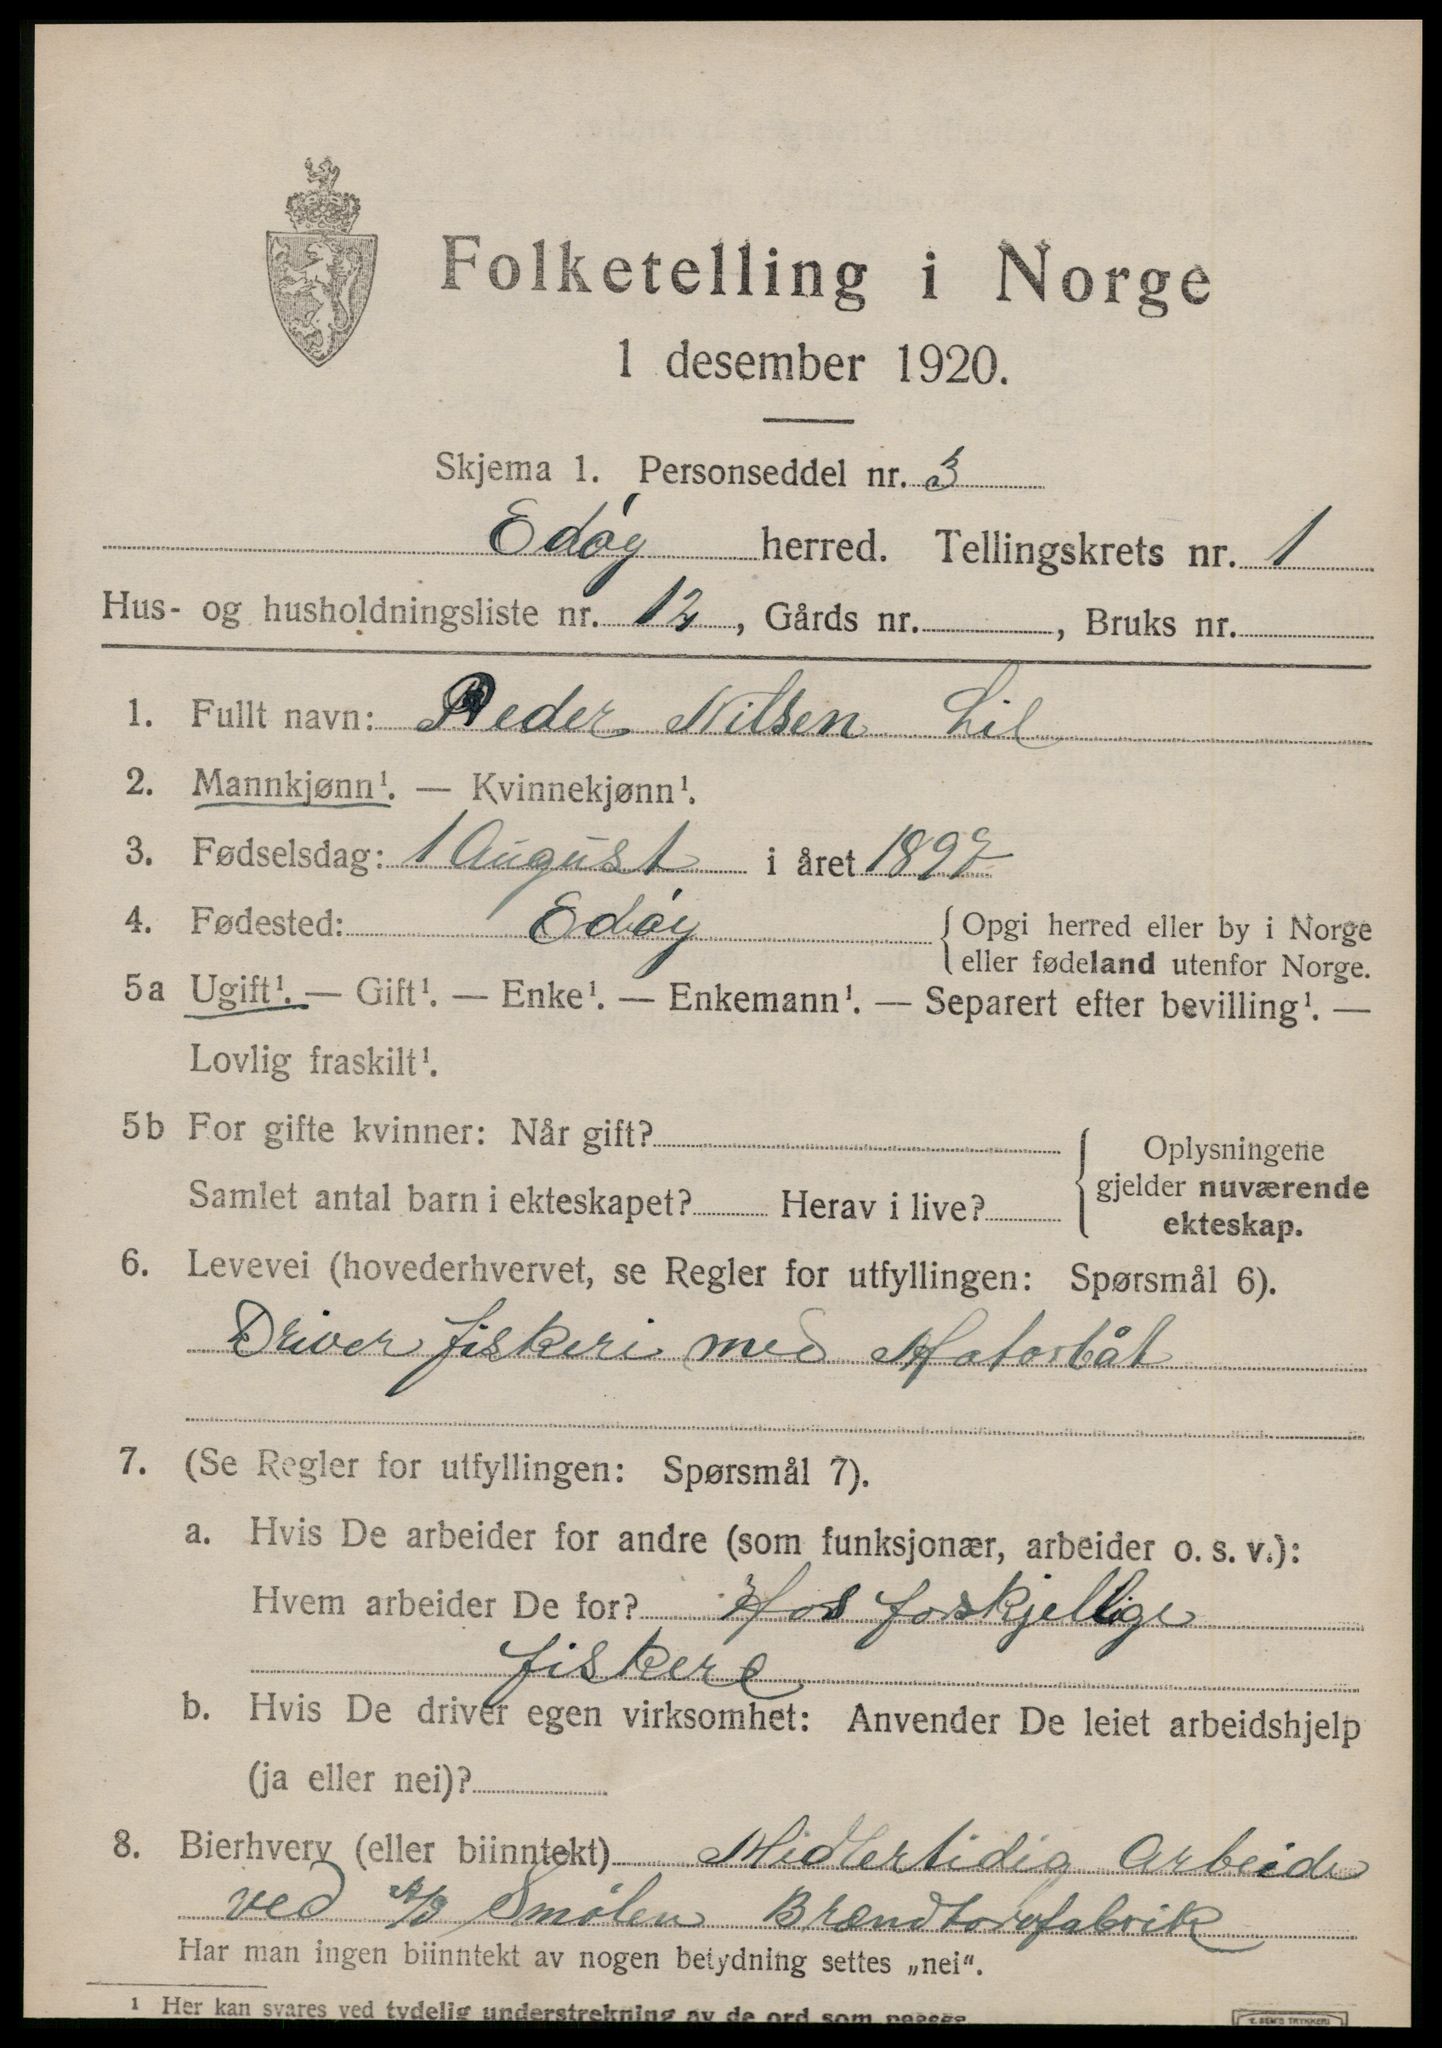 Folketelling i Norge
1 desember 1920.
Skjema 1. Personseddel nr. 3
Edøy herred. Tellingskrets nr. 1
Hus- og husholdningsliste nr. 12, Gårds nr. , Bruks nr.
1. Fullt navn: Peder Nilsen Lil
2. Mannkjønn¹. — Kvinnekjønn¹.
3. Fødselsdag: 1 August i året 1897
4. Fødested: Edøy {Opgi herred eller by i Norge
eller fødeland utenfor Norge.
5a Ugift¹. — Gift¹. — Enke¹. — Enkemann¹. — Separert efter bevilling¹. —
Lovlig fraskilt¹.
5b For gifte kvinner: Når gift?
Samlet antal barn i ekteskapet? Herav i live?
Oplysningene
gjelder nuværende
ekteskap.
6. Levevei (hovederhvervet, se Regler for utfyllingen: Spørsmål 6).
Driver fiskeri med Motorbåt
7. (Se Regler for utfyllingen: Spørsmål 7).
a. Hvis De arbeider for andre (som funksjonær, arbeider o. s. v.):
Hvem arbeider De for? Hos forskjellige
fiskere
b. Hvis De driver egen virksomhet: Anvender De leiet arbeidshjelp
(ja eller nei)?
8. Bierhverv (eller biinntekt) Midlertidig Arbeide
ved A/S Smølen Brændtorvfabrik
Har man ingen biinntekt av nogen betydning settes „nei“.
¹ Her kan svares ved tydelig understrekning av de ord som passe
E. SEM'S TRYKKERI